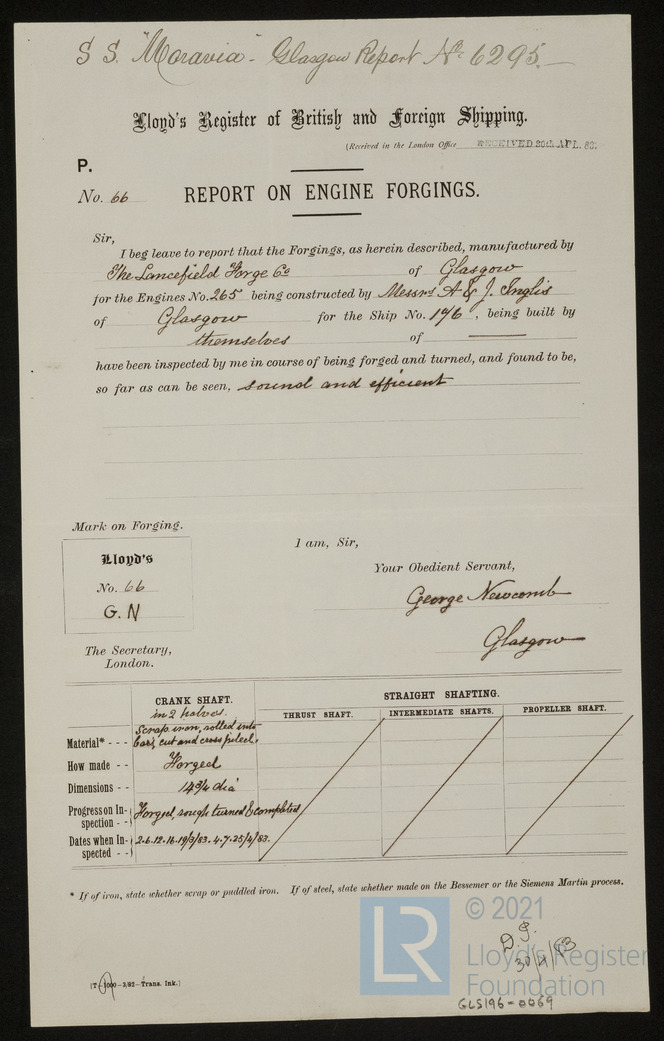 S S. "Moravia" - Glasgow Report No. 6295.
Lloyd's Register of British and Foreign Shipping.
(Received in the London Office RECEIVED 30th APL. 83.
P.
No. 66 REPORT ON ENGINE FORGINGS.
Sir,
I beg leave to report that the Forgings, as herein described, manufactured by
The Lancefield Forge Co of Glasgow
for the Engines No. 265 being constructed by Messrs A & J. Inglis
of Glasgow for the Ship No. 176, being built by
themselves of
have been inspected by me in course of being forged and turned, and found to be,
so far as can be seen, sound and efficient
Mark on Forging.
Lloyd's
No. 66
G. N
I am, Sir,
Your Obedient Servant,
George Newcomb
Glasgow
The Secretary,
London.
CRANK SHAFT. STRAIGHT SHAFTING.
in 2 halves. THRUST SHAFT. INTERMEDIATE SHAFTS. PROPELLER SHAFT.
Material* - - - Scrap iron, rolled into
bars, cut and cross piled.
How made - - Forged
Dimensions - - 14 3/4 dia
Progress on In-
spection - - Forged, rough turned & completed
Dates when In-
spected - - 2.6.12.16.19/3/83. 4.7.25/4/83.
* If of iron, state whether scrap or puddled iron. If of steel, state whether made on the Bessemer or the Siemens Martin process.
LR © 2021
Lloyd's Register
Foundation
30/4/83
(T—1000—3/82—Trans. Ink.)
GLS196-0069